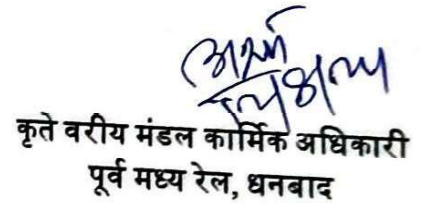 कृते वरीय मंडल कार्मिक अधिकारी
पूर्व मध्य रेल, धनबाद